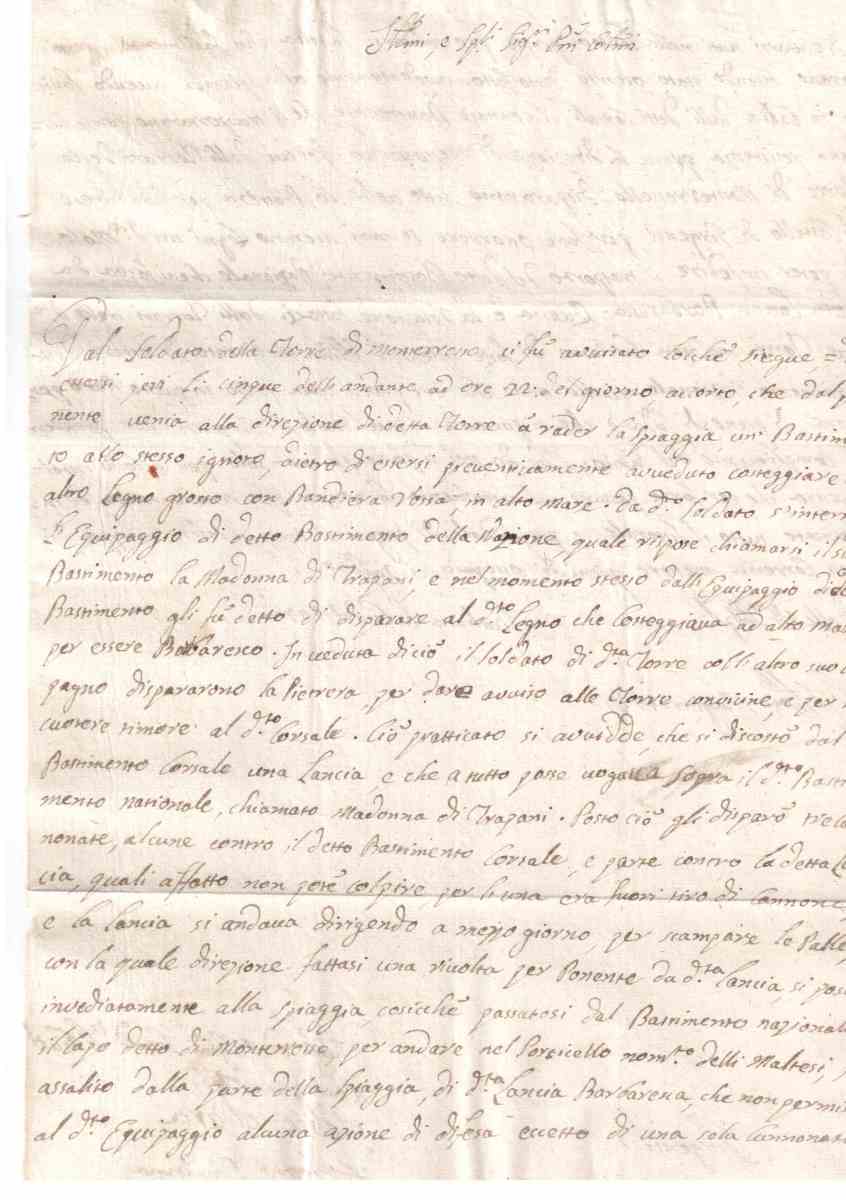 Ill.mi, e Sp.li Sig.ri P.ni Col.mi
Dal Soldato della Torre di Monterosso, ci fù avvisato locchè siegue, =
essersi jeri li cinque dell'andante ad ore 22. del giorno accorto, che dal po
nente venia alla direzione di detta Torre à rader la spiaggia, un Bastimen
to allo stesso ignoto, dietro di essersi preventivamente avveduto costeggiare
altro Legno grosso con Bandiera rossa, in alto mare. da d.to Soldato s'interr
l'Equipaggio di detto Bastimento della Nazione, quale rispose chiamarsi il su
Bastimento la Madonna di Trapani, e nel momento stesso dall'Equipaggio di de
Bastimento gli fù detto di disparare al d.to Legno che costeggiava ad alto mar
per essere Barbaresco. In veduta di ciò il soldato di d.ta Torre coll'altro suo c
pagno dispararono la Pietrera, per dare avviso alle Torre convicine, e per
cuotere timore al d.to Corsale. Ciò pratticato si avvidde, che si discostò dal
Bastimento Corsale una Lancia, e che a tutto posse vogava sopra il d.to Basti
mento nazionale, chiamato Madonna di Trapani. Posto ciò gli disparò tre Can
nonate, alcune contro il detto Bastimento Corsale, e parte contro la detta La
cia, quali affatto non potè colpire, per l'una era fuori tiro di Cannone,
e la Lancia si andava dirigendo a mezzo giorno, per scampare le Palle,
con la quale direzione fattasi una rivolta per Ponente da d.ta Lancia, si pos
imediatamente alla spiaggia, cosicchè passatosi dal Bastimento nazional
il Capo detto di Monterosso, per andare nel Porticello nom.to delli Maltesi,
assalito dalla parte della spiaggia, di d.ta Lancia Barbaresca, che non permi
al d.to Equipaggio alcuna azione di difesa eccetto di una sola Cannonat